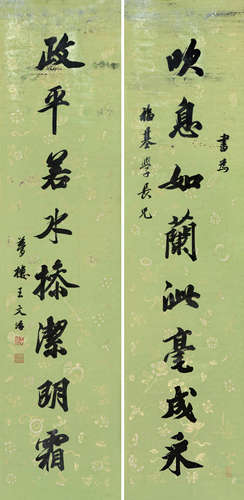 吹息如蘭泚毫成采
書為
福基學長兄
政平若水操潔明霜
夢樓王文治